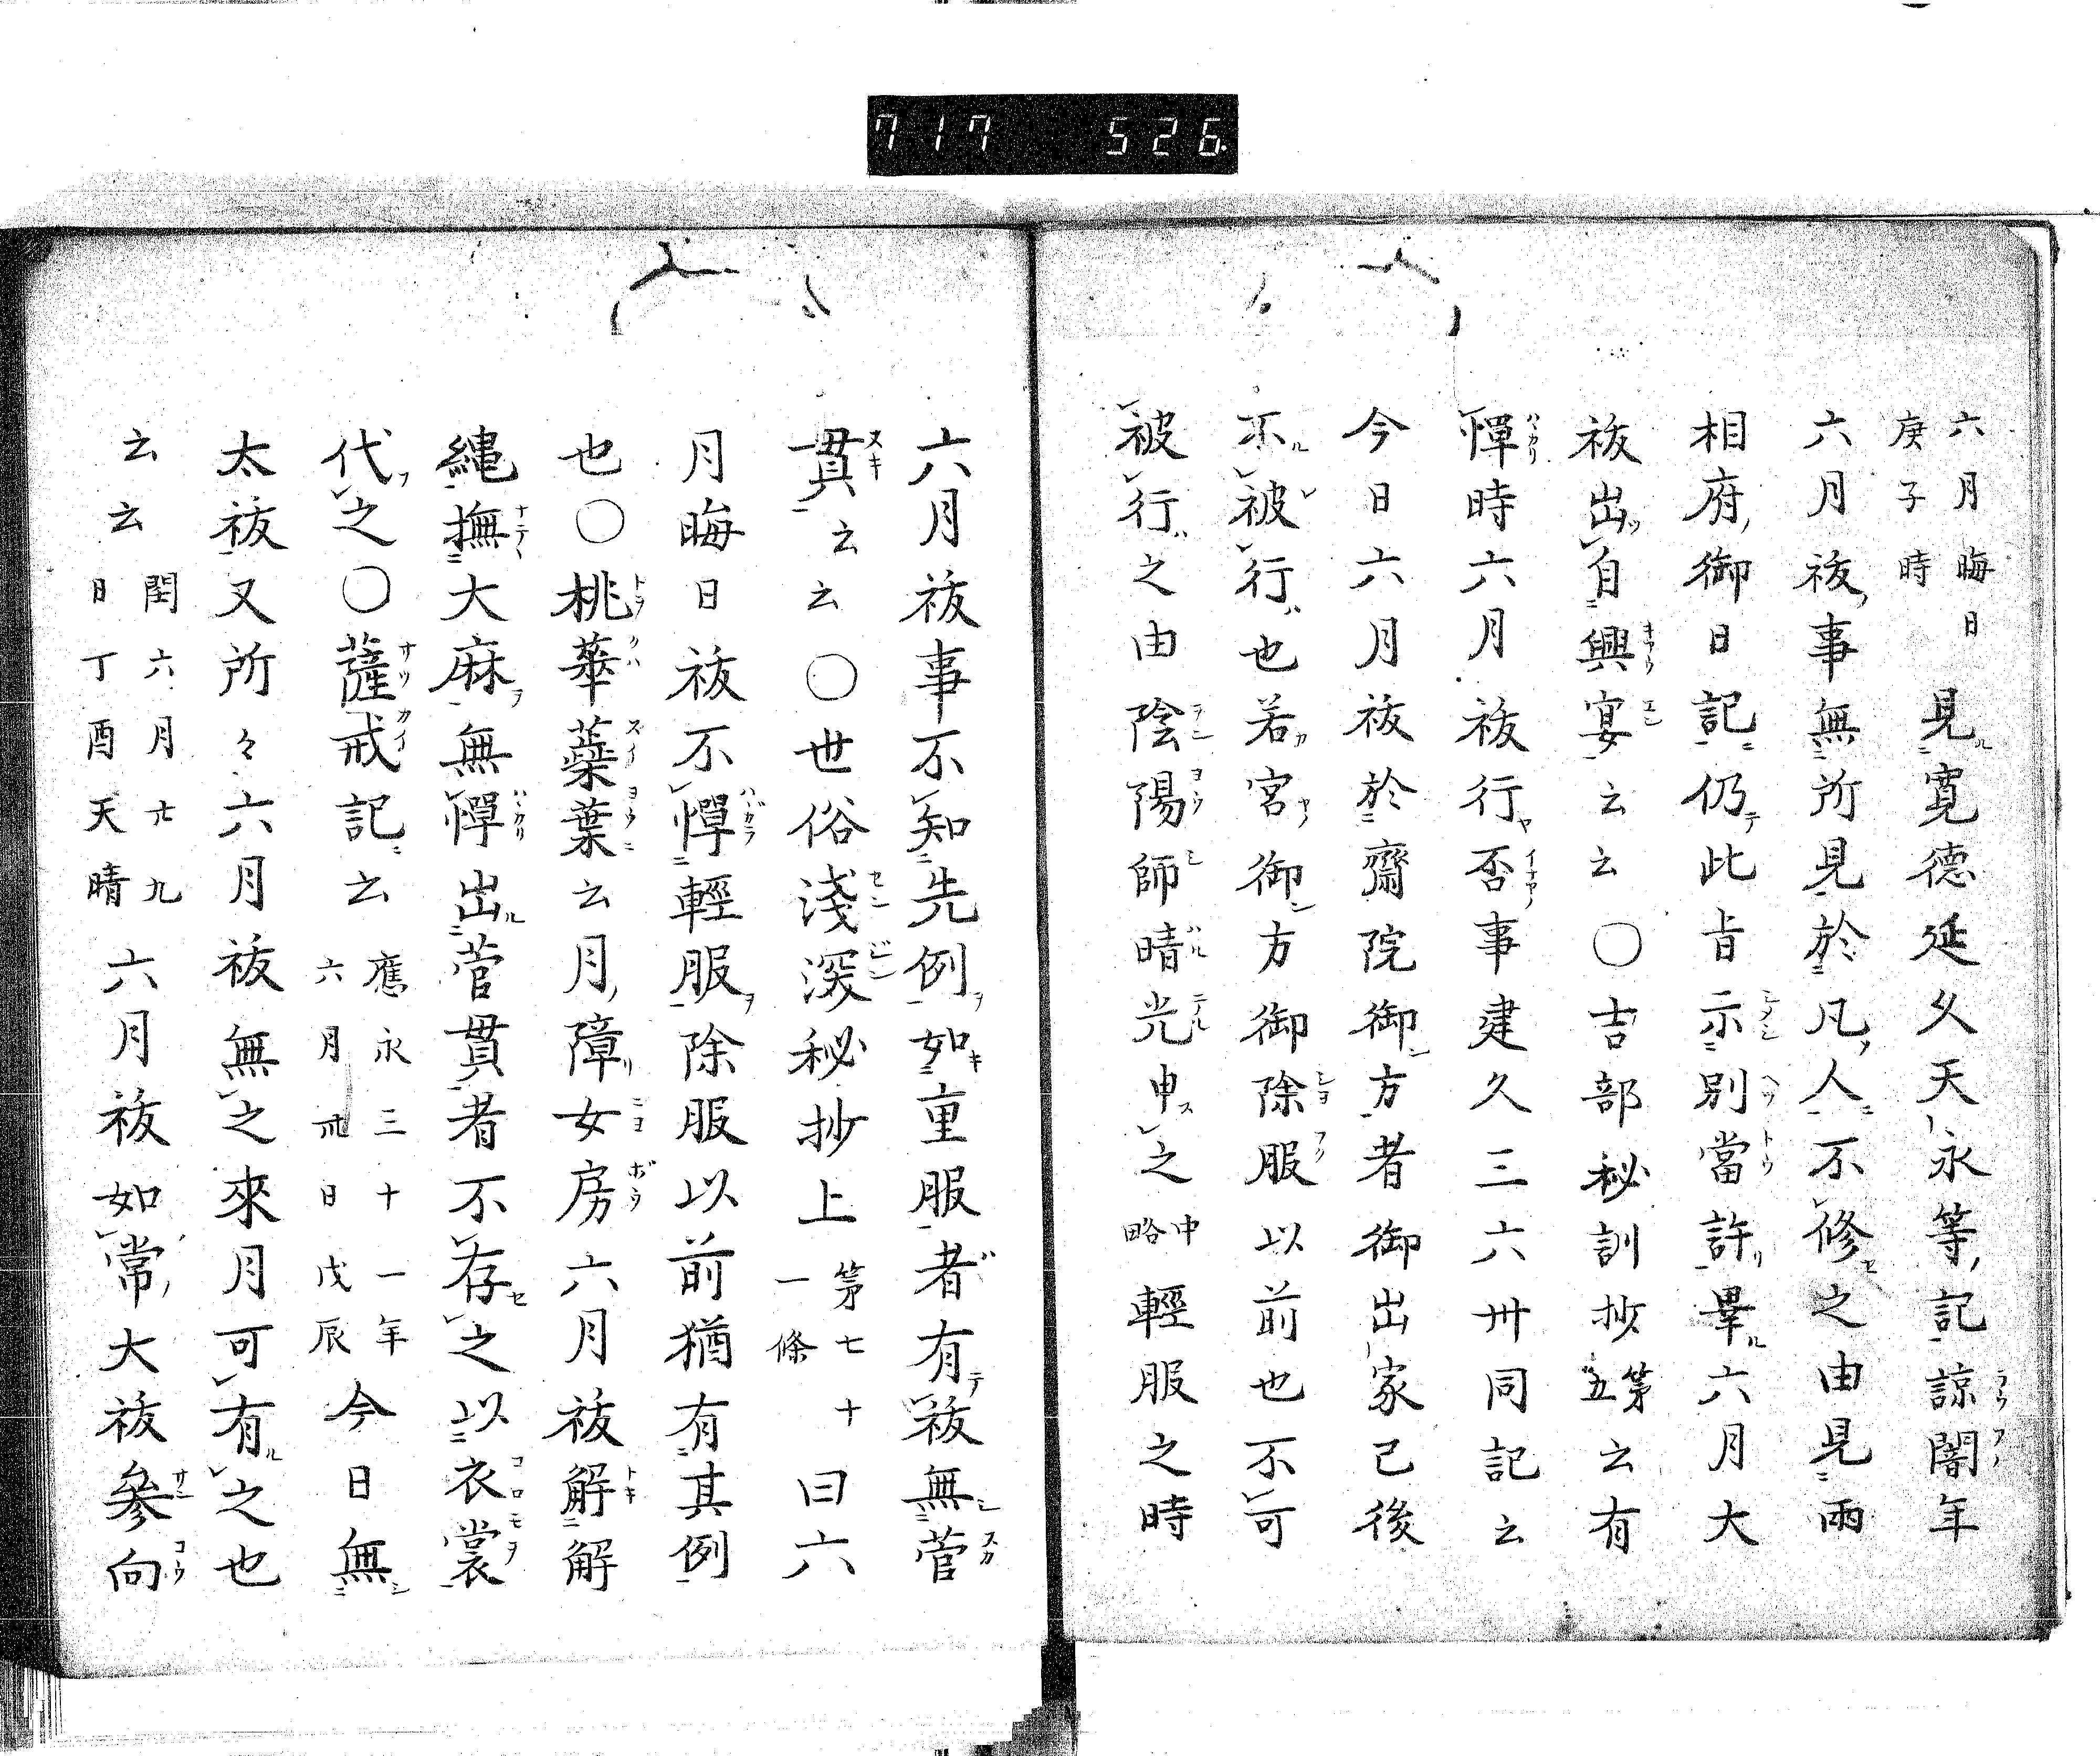 717 526
六月晦日庚子時見寛德延久天永等記諒闇年
六月祓事無所見於凡人不修之由見兩
相府御日記仍此旨示別當許畢六月大
祓出自興宴云云〇吉部秘訓抄第五云有
憚時六月祓行否事建久三六卅同記云
今日六月祓於齋院御方者御出家已後
不被行也若宮御方御除服以前也不可
被行之由陰陽師晴光申之中略輕服之時
六月祓事不知先例如重服者有祓無菅
貫云云〇世俗淺深秘抄上第七十一條曰六
月晦日祓不憚輕服除服以前猶有其例
也〇桃華蘂葉云月障女房六月祓解解
繩撫大麻無憚出菅貫者不存之以衣裳
代之〇薩戒記云應永三十一年六月卅日戊辰今日無
太祓又所々六月祓無之來月可有之也
云云閏六月廿九日丁酉天晴六月祓如常大祓參向